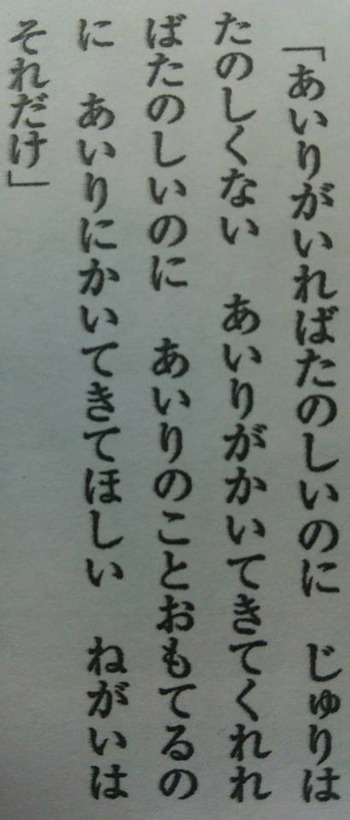 「あいりがいればたのしいのに　じゅりは
たのしくない　あいりがかいてきてくれれ
ばたのしいのに　あいりのことおもてるの
に　あいりにかいてきてほしい　ねがいは
それだけ」